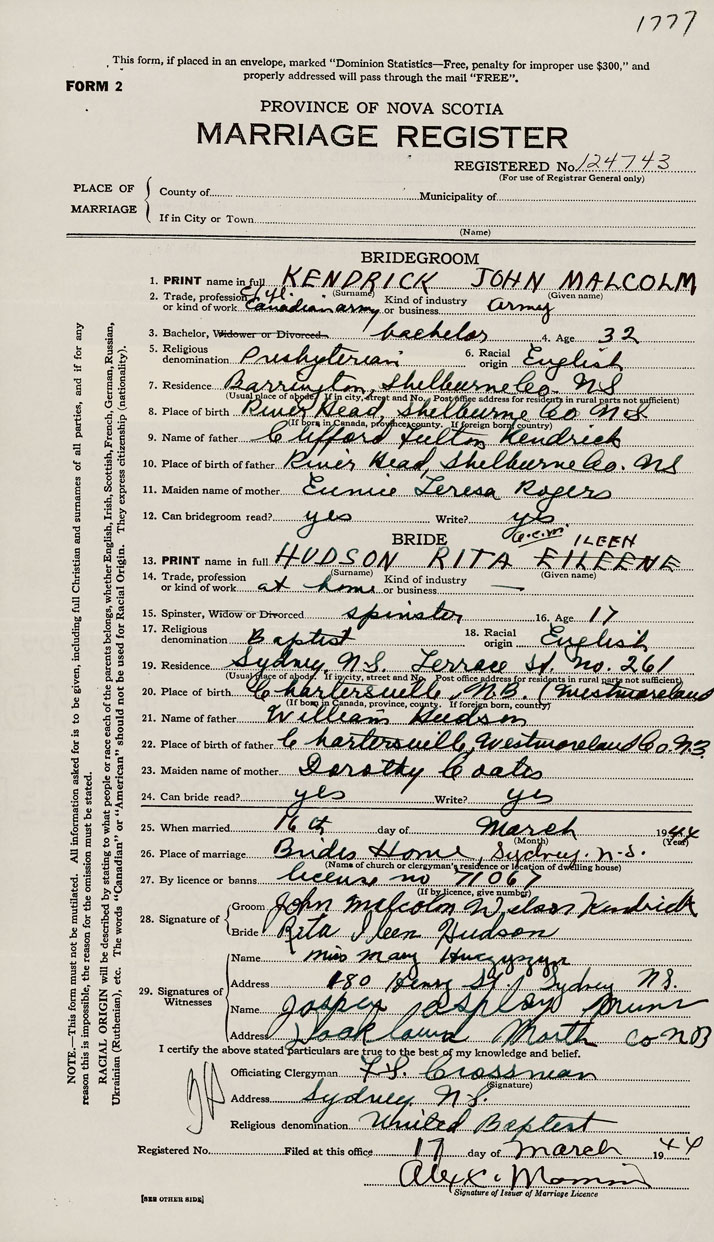 1777
This form, if placed in an envelope, marked "Dominion Statistics—Free, penalty for improper use $300," and
properly addressed will pass through the mail "FREE".
FORM 2
PROVINCE OF NOVA SCOTIA
MARRIAGE REGISTER
REGISTERED No. 124743
(For use of Registrar General only)
PLACE OF MARRIAGE
County of Municipality of
If in City or Town
(Name)
BRIDEGROOM
1. PRINT name in full KENDRICK JOHN MALCOLM
(Surname) (Given name)
2. Trade, profession or kind of work Canadian army Kind of industry or business army
3. Bachelor, Widower or Divorced bachelor 4. Age 32
5. Religious denomination Presbyterian 6. Racial origin English
7. Residence Barrington, Shelburne Co. N.S
(Usual place of abode. If in city, street and No. Post office address for residents in rural parts not sufficient)
8. Place of birth River Head, Shelburne Co N.S
(If born in Canada, province, county. If foreign born, country)
9. Name of father Clifford Fulton Kendrick
10. Place of birth of father River Head, Shelburne Co. NS
11. Maiden name of mother Eunice Teresa Rogers
12. Can bridegroom read? yes Write? yes
BRIDE
ILEEN
13. PRINT name in full HUDSON RITA EILEENE
(Surname) (Given name)
14. Trade, profession or kind of work at home Kind of industry or business —
15. Spinster, Widow or Divorced spinster 16. Age 17
17. Religious denomination Baptist 18. Racial origin English
19. Residence Sydney, N.S. Terrace St. No. 261
(Usual place of abode. If in city, street and No. Post office address for residents in rural parts not sufficient)
20. Place of birth Chartersville, N.B. (Westmoreland
(If born in Canada, province, county. If foreign born, country)
21. Name of father William Hudson
22. Place of birth of father Chartersville, Westmoreland Co. N.B.
23. Maiden name of mother Dorothy Coates
24. Can bride read? yes Write? yes
25. When married 16th day of March 1944
(Month) (Year)
26. Place of marriage Brides Home, Sydney. N.S.
(Name of church or clergyman's residence or location of dwelling house)
27. By licence or banns license no 71067
(If by licence, give number)
28. Signature of
Groom John Malcolm Wilson Kendrick
Bride Rita Ileen Hudson
29. Signatures of Witnesses
Name Miss Mary
Address 180 Henry St. Sydney NS.
Name Jasper
Address North Co NB
I certify the above stated particulars are true to the best of my knowledge and belief.
Officiating Clergyman F.S. Crossman
(Signature)
Address Sydney N.S.
Religious denomination United Baptist
Registered No. Filed at this office 17 day of March 1944
Alex C.
Signature of Issuer of Marriage Licence
[SEE OTHER SIDE]
NOTE.—This form must not be mutilated. All information asked for is to be given, including full Christian and surnames of all parties, and if for any
reason this is impossible, the reason for the omission must be stated.
RACIAL ORIGIN will be described by stating to what people or race each of the parents belongs, whether English, Irish, Scottish, French, German, Russian,
Ukrainian (Ruthenian), etc. The words "Canadian" or "American" should not be used for Racial Origin. They express citizenship (nationality).